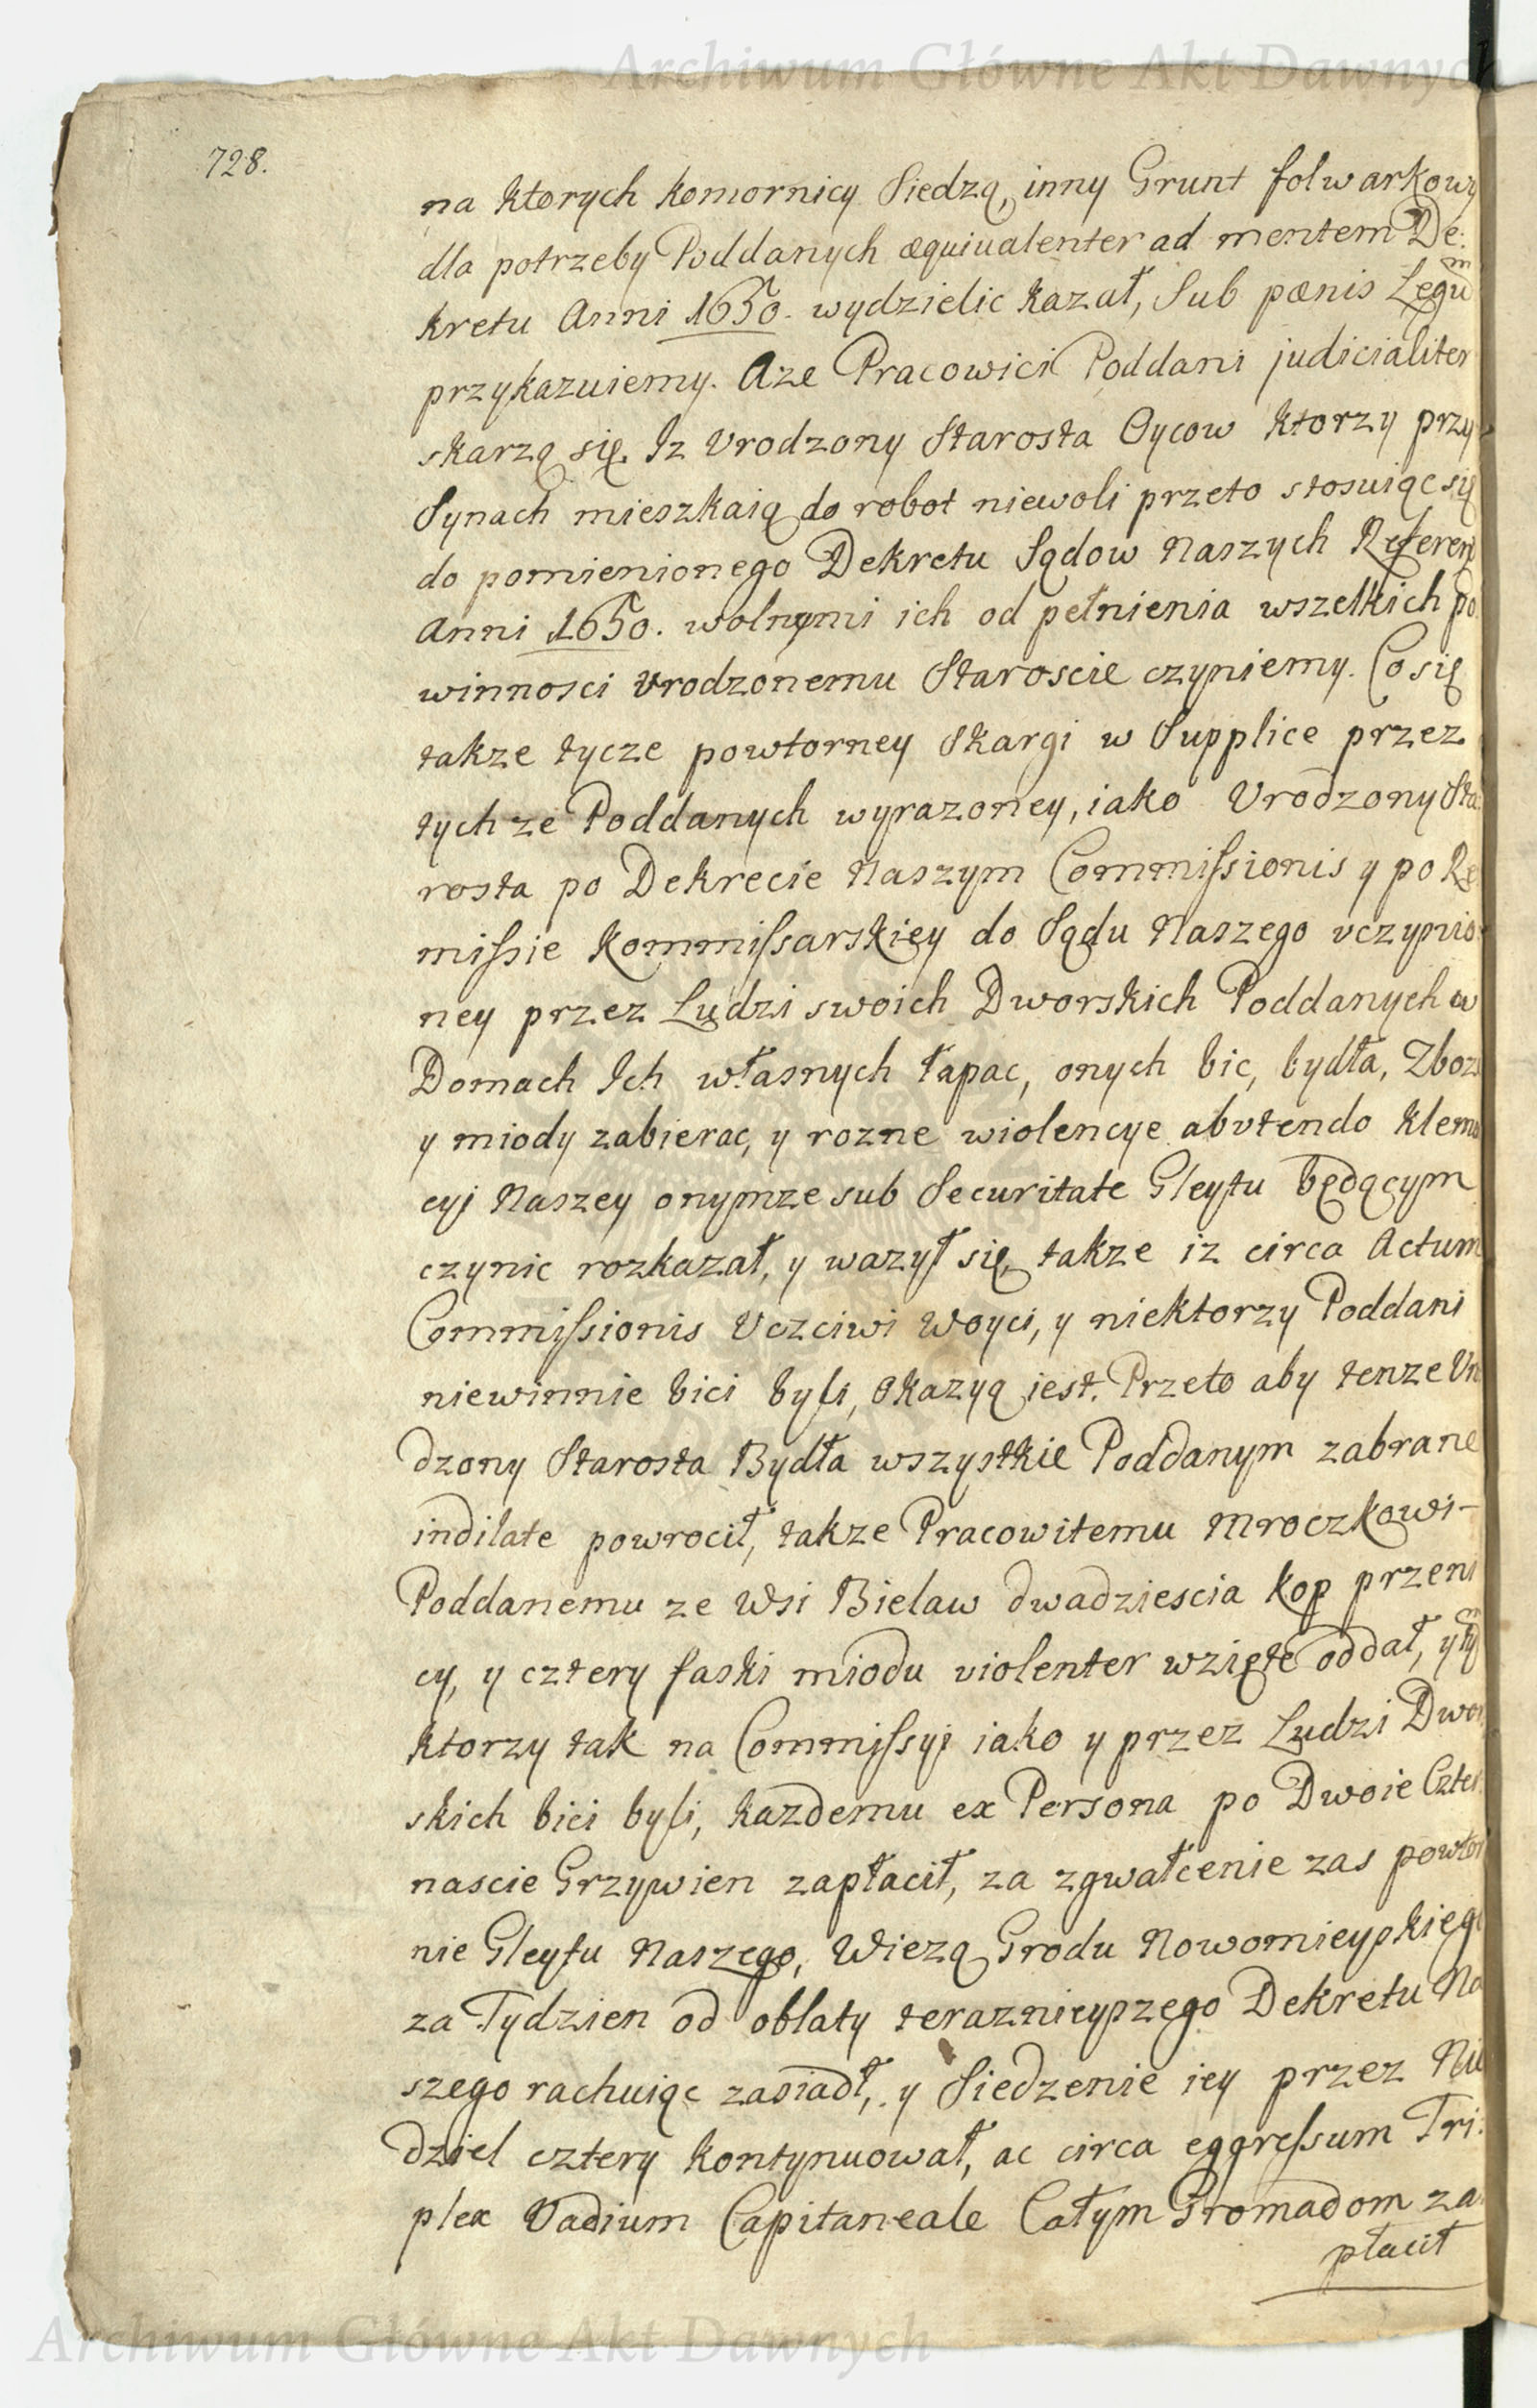 Archiwum Główne Akt Dawnych
728.
na ktorych komornicy Siedzą, inny Grunt folwarkowy
dla potrzeby Poddanych æquiualenter ad mentem De:
kretu Anni 1650. wydzielic kazał, Sub pænis Legũ
przykazuiemy. Aze Pracowici Poddani judicialiter
skarzą się. Iz Vrodzony Starosta Oycow ktorzy przy
Synach mieszkaią do robot niewoli przeto stosuiąc się
do pomienionego Dekretu Sądow Naszych Referen
Anni 1650. wolnymi ich od pełnienia wszelkich po
winnosci Vrodzonemu Staroscie czyniemy. Co się
takze tycze powtorney Skargi w Supplice przez
tych ze Poddanych wyrazoney, iako Vrodzony Sta
rosta po Dekrecie Naszym Commiſsionis y po Re
miſsie Kommiſsarskiey do Sądu Naszego vczynio
ney przez Ludzi swoich Dworskich Poddanych w
Domach Ich własnych łapac, onych bic, bydła, Zboz
y miody zabierac, y rozne wiolencye abvtendo klem
cyi Naszey onymze sub Securitate Gleytu będącym
czynic rozkazał, y wazył się, takze iz circa Actum
Commiſsionis Vczciwi Woyci, y niektorzy Poddani
niewinnie bici byli, okazyą iest. Przeto aby tenze Vro
dzony Starosta Bydła wszystkie Poddanym zabrane
indilate powrocił, takze Pracowitemu Mroczkowi-
Poddanemu ze Wsi Bielaw dwadziescia kop przeni
cy, y cztery faski miodu violenter wzięte oddał, y tym
ktorzy tak na Commiſsyi iako y przez Ludzi Dwor
skich bici byli, kazdemu ex Persona po Dwoie Czter
nascie Grzywien zapłacił, za zgwałcenie zas powtor
nie Gleytu Naszego, Wiezą Grodu Nowomieyskiego
za Tydzien od oblaty teraznieyszego Dekretu Na
szego rachuiąc zasiadł, y Siedzenie iey przez Nie
dziel cztery kontynuował, ac circa eggreſsum Tri:
plex Vadium Capitaneale Całym Gromadom za
płacił
Archiwum Główne Akt Dawnych